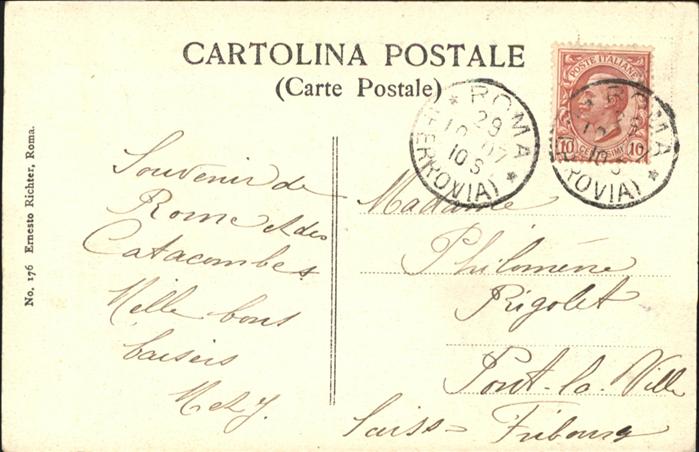 CARTOLINA POSTALE
(Carte Postale)
POSTE ITALIANE
10 CENTESIMI 10
* ROMA *
29
10 07
10 S
(FERROVIA)
* ROMA *
10
10 S
(FERROVIA)
No. 176 Ernesto Richter, Roma.
Souvenir de
Rome et des
Catacombes
Mille bons
baisers
Madame
Philomène
Rigolet
Pont-la Ville
Suiss= Fribourg